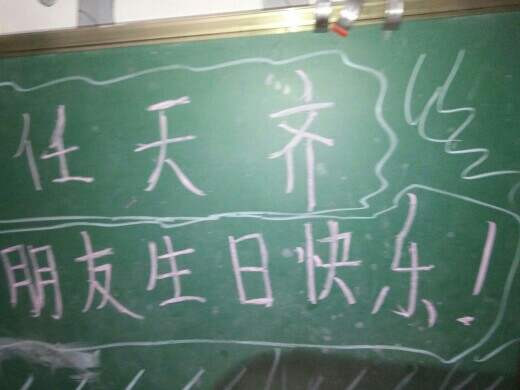 任天齐
朋友生日快乐!